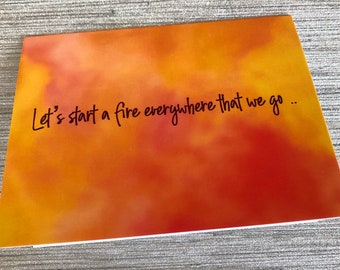 Let's start a fire everywhere that we go ..